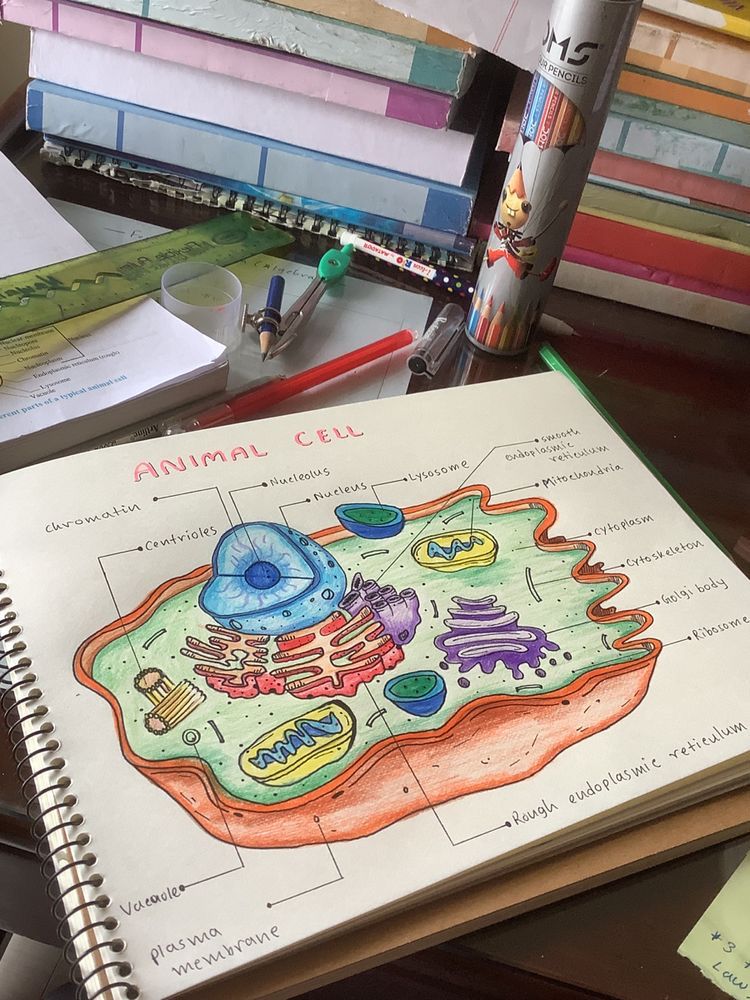 OMS
UR PENCILS
Nuclear membrane
Nucleopore
Nucleolus
Chromatin
Nucleoplasm
Endoplasmic reticulum (rough)
Lysosome
Vacuole
erent parts of a typical animal cell
Artline
ANIMAL CELL
chromatin
Nucleolus
Nucleus
Lysosome
smooth
endoplasmic
reticulum
Mitochondria
Centrioles
cytoplasm
Cytoskeleton
Golgi body
Ribosome
Rough endoplasmic reticulum
Vacuole
plasma
membrane
*3
Law